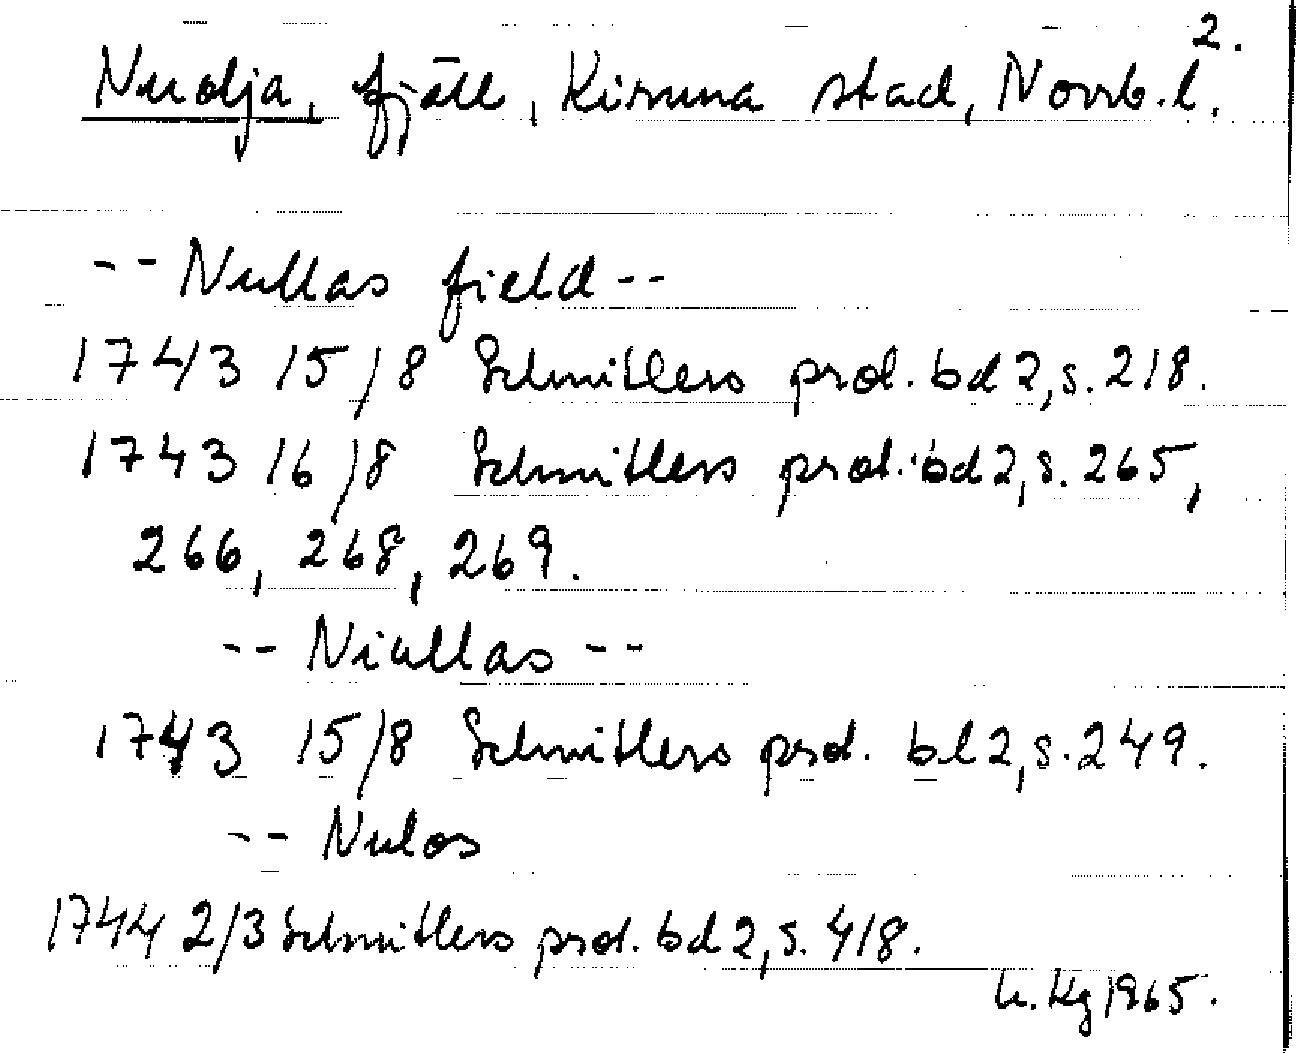 2.
Nuolja, fjäll, Kiruna stad, Norrb. l.
-- Nullas field --
1743 15/8 Schnitlers prot. bd 2, s. 218.
1743 16/8 Schnitlers prot. bd 2, s. 265,
266, 268, 269.
-- Niullas --
1743 15/8 Schnitlers prot. bd 2, s. 249.
-- Nulos
1744 2/3 Schnitlers prot. bd 2, s. 418.
h. Kg 1965.